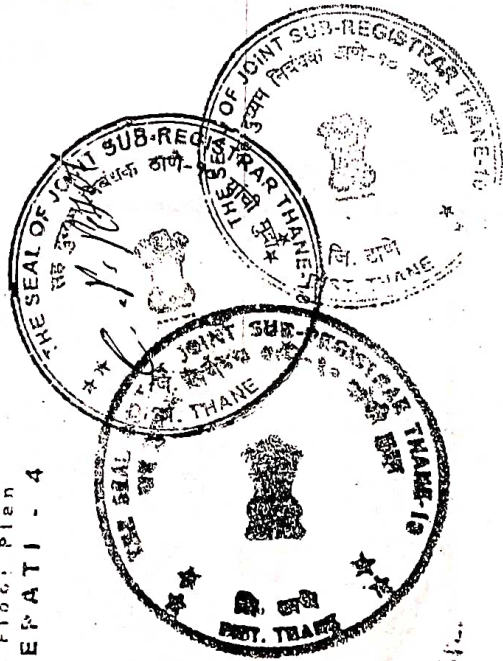 THE SEAL OF JOINT SUB-REGISTRAR THANE-10
सह दुय्यम निबंधक ठाणे-१० यांची मुद्रा
जि. ठाणे
DIST. THANE
THE SEAL OF JOINT SUB-REGISTRAR THANE-10
सह दुय्यम निबंधक ठाणे-
यांची मुद्रा
DIST. THANE
THE SEAL JOINT SUB-REGISTRAR THANE-10
जि. ठाणे
DIST. THANE
Floor Plan
EPATI - 4